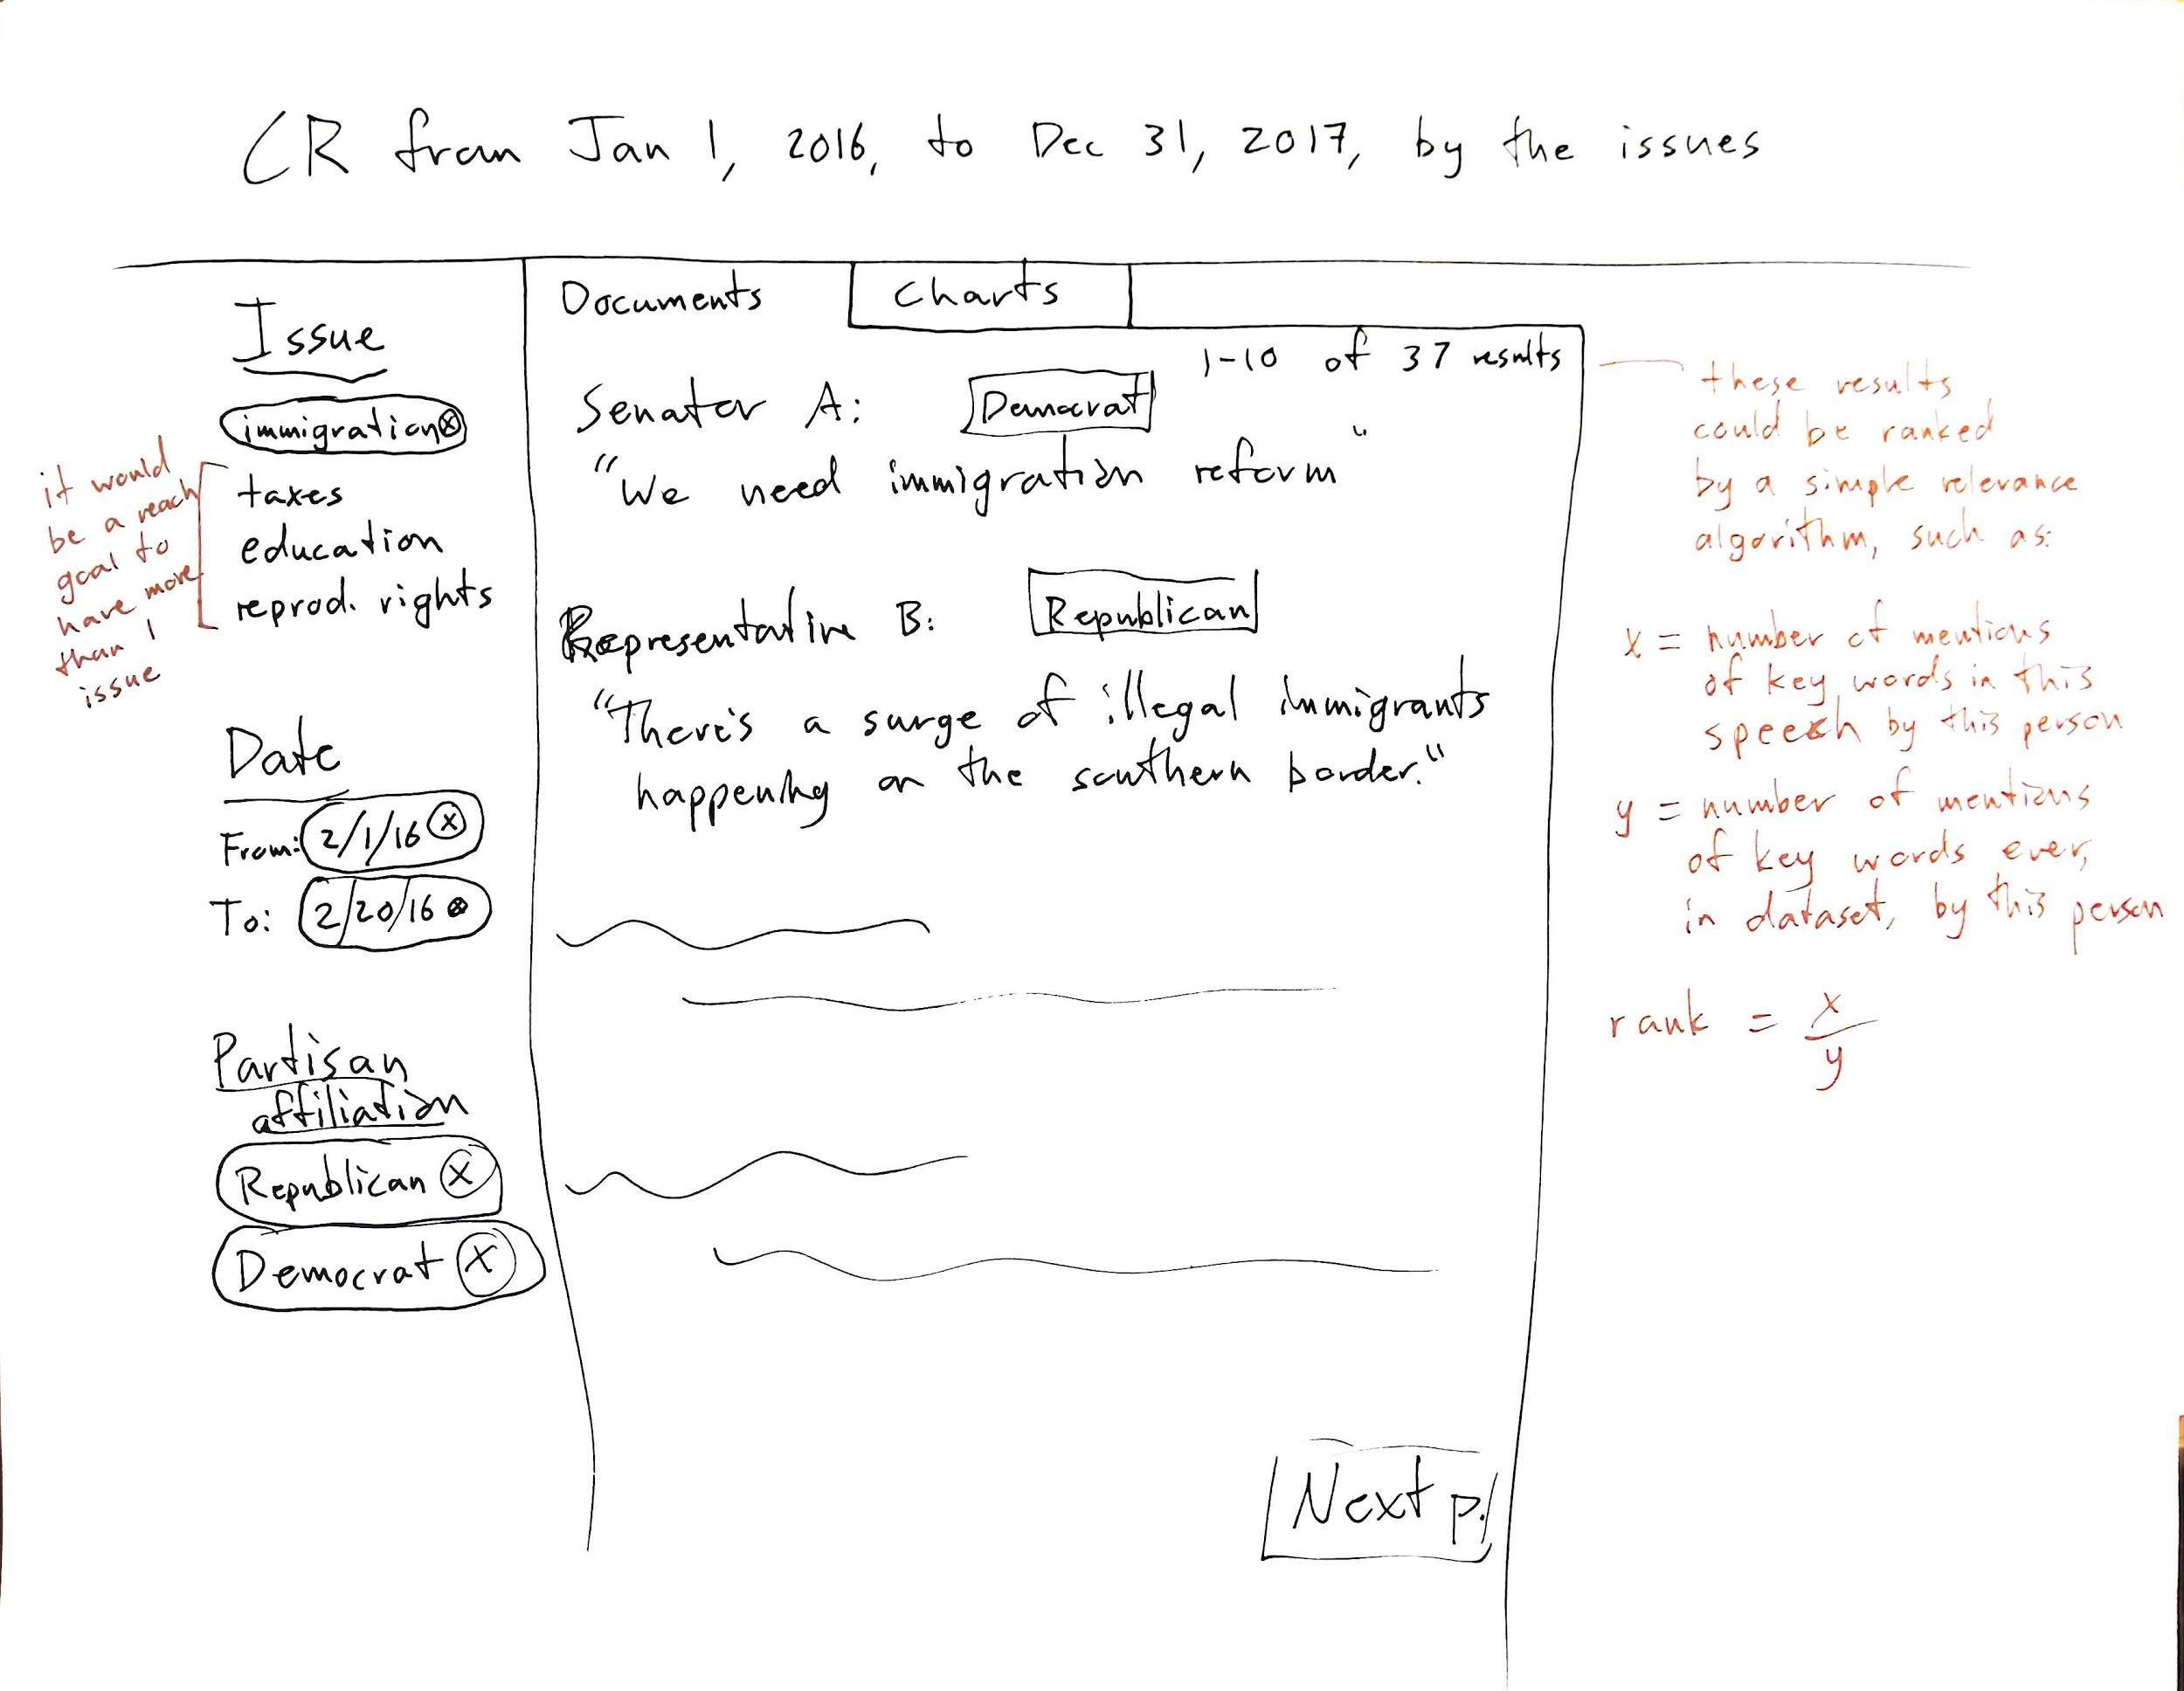 CR from Jan 1, 2016, to Dec 31, 2017, by the issues
Issue
immigration ⓧ
taxes
education
reprod. rights
it would
be a reach
goal to
have more
than 1
issue
Date
From: 2/1/16 ⓧ
To: 2/20/16 ⓧ
Partisan
affiliation
Republican ⓧ
Democrat ⓧ
Documents
Charts
1-10 of 37 results
Senator A: Democrat
"We need immigration reform"
Representative B: Republican
"There's a surge of illegal immigrants
happening on the southern border."
Next p.
these results
could be ranked
by a simple relevance
algorithm, such as:
x = number of mentions
of key words in this
speech by this person
y = number of mentions
of key words ever,
in dataset, by this person
rank = x/y